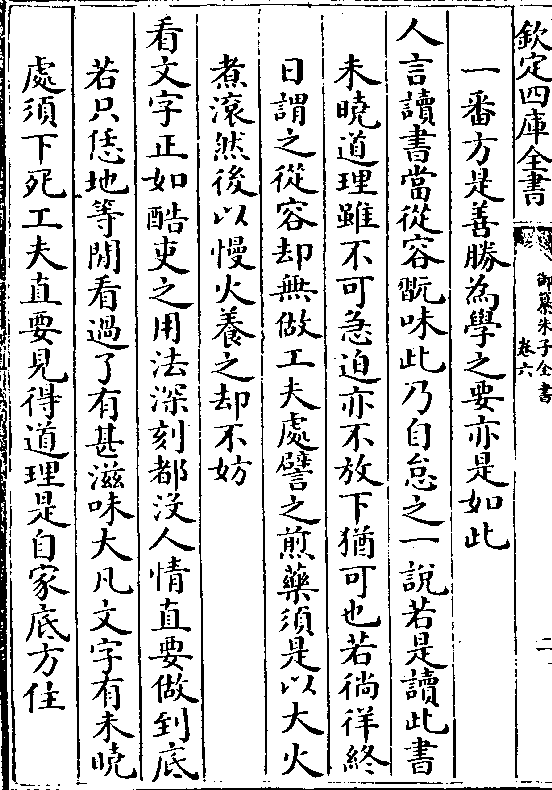 欽定四庫全書
御纂朱子全書
卷六
二
一番方是善勝為學之要亦是如此
人言讀書當從容翫味此乃自怠之一說若是讀此書
未曉道理雖不可急迫亦不放下猶可也若徜徉終
日謂之從容却無做工夫處譬之煎藥須是以大火
煮滚然後以慢火養之却不妨
看文字正如酷吏之用法深刻都沒人情直要做到底
若只恁地等閒看過了有甚滋味大凡文字有未曉
處須下死工夫直要見得道理是自家底方住